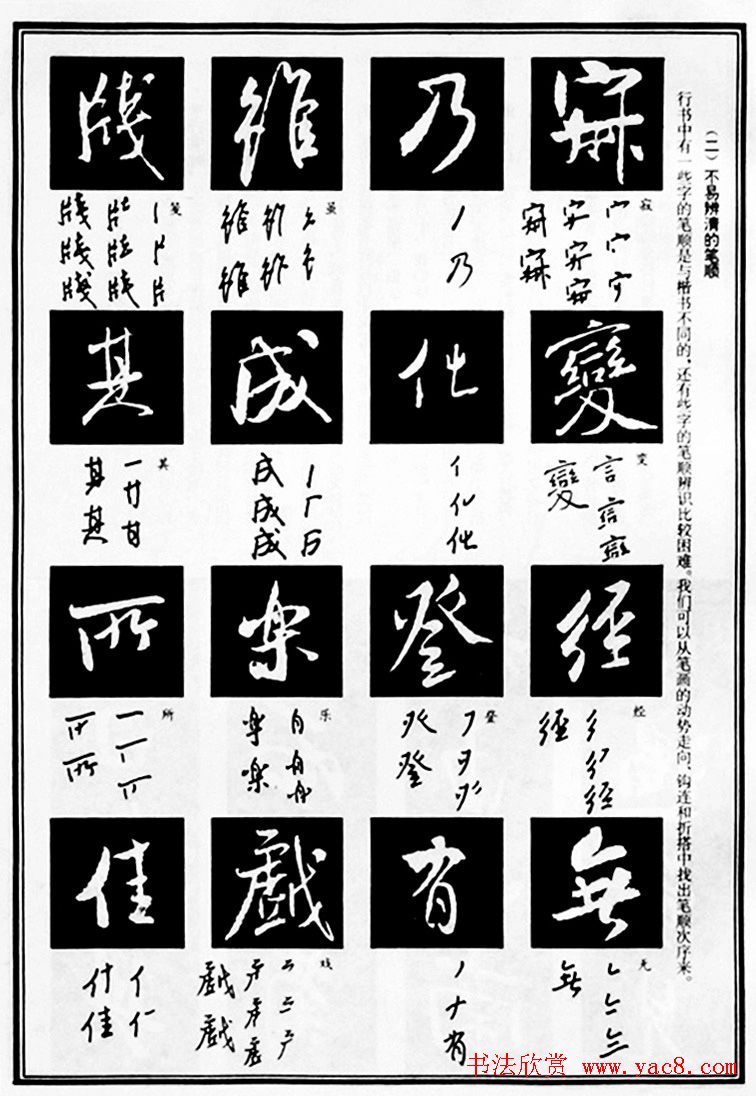 （二）不易辨清的笔顺
行书中有一些字的笔顺是与楷书不同的，还有些字的笔顺辨识比较困难。我们可以从笔画的动势走向、钩连和折搭中找出笔顺次序来。
寂
變
变
經
经
無
无
乃
登
登
有
虽
成
楽
乐
戲
戏
牋
笺
其
其
所
所
佳
书法欣赏 www.yac8.com